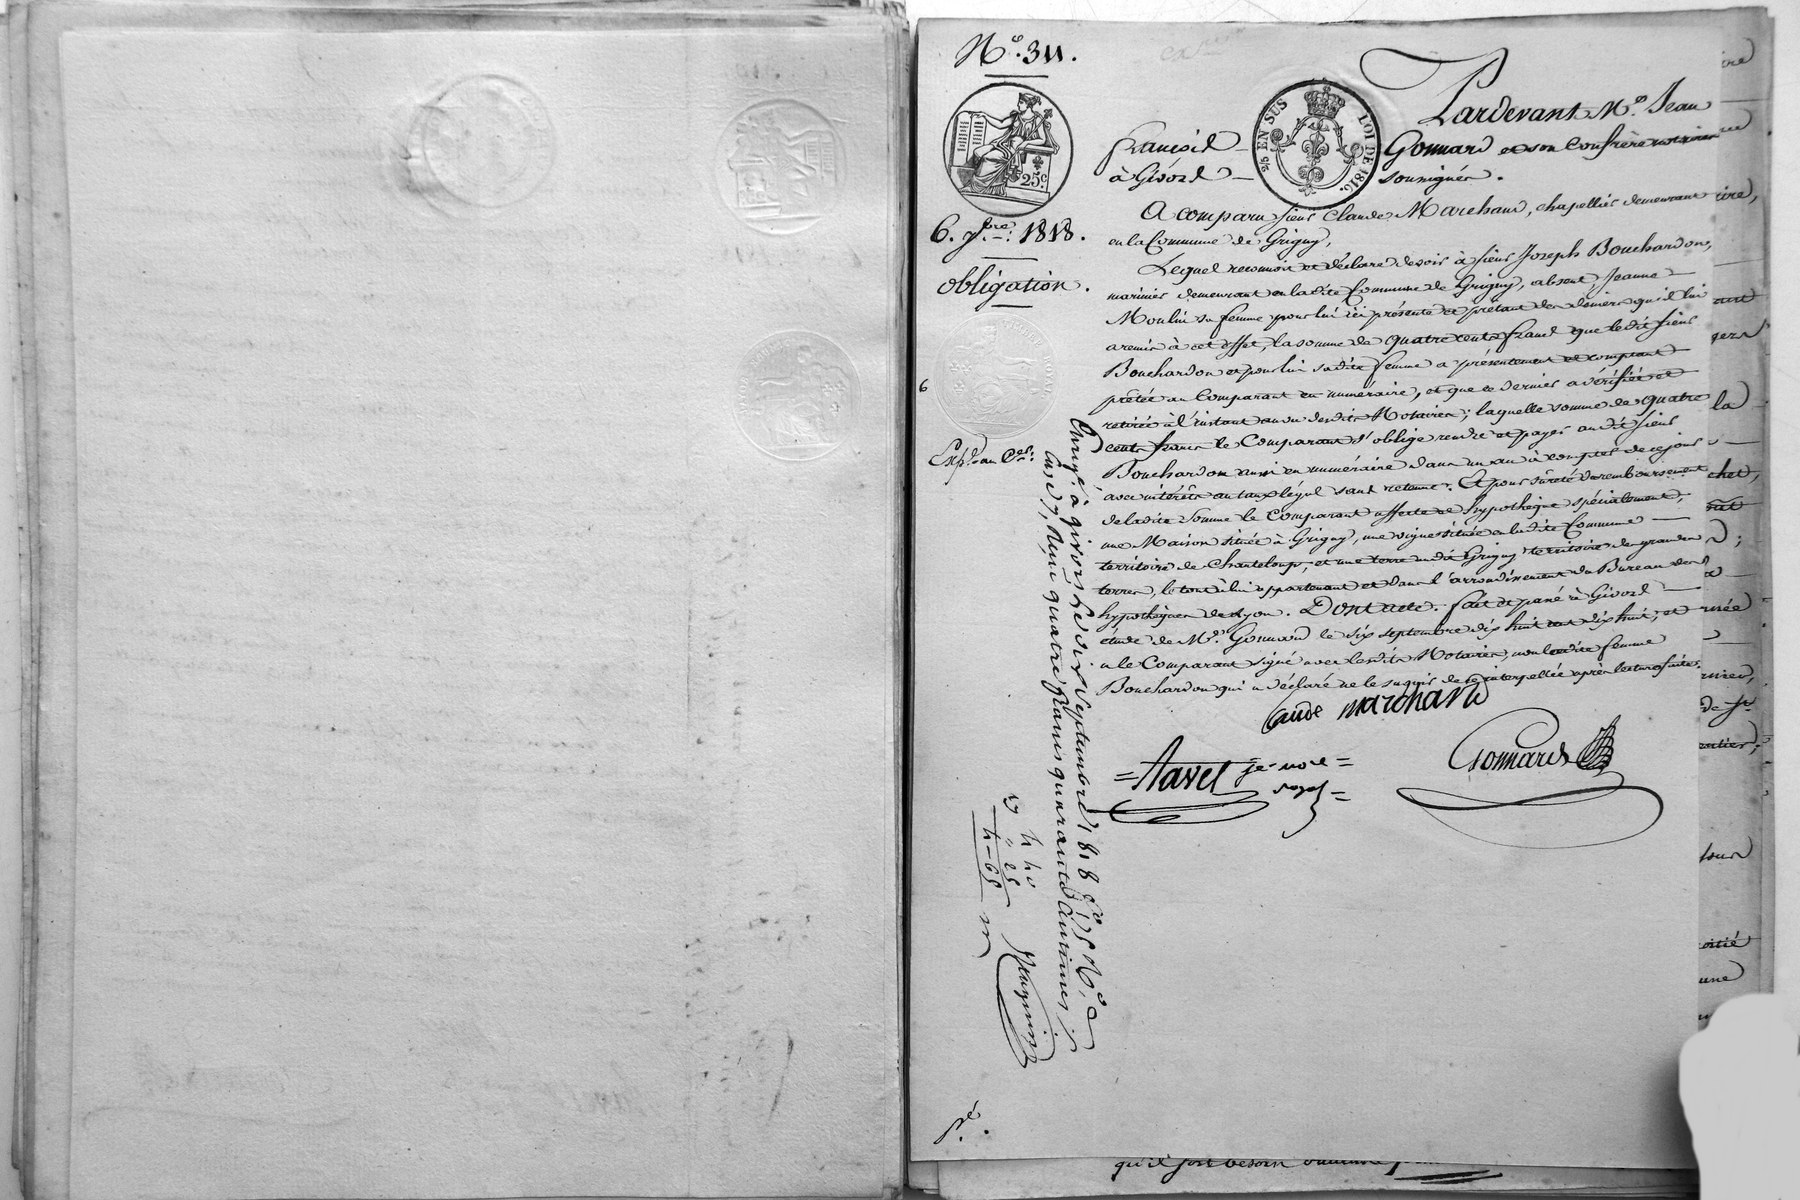 N.º 311.
25 EN SUS
LOI DE 1816.
25.c
Pardevant M.e Jean
françois Gonnard et son confrère notaires
à Givors soussignés.
6. 7bre 1818.
obligation.
A comparu sieur Claude Marchand, chapellier demeurant
en la Commune de Grigny,
Lequel reconnoit et déclare devoir à sieur Joseph Bouchardon,
marinier demeurant en ladite Commune de Grigny, absent, Jeanne
Moulin sa femme pour lui ici présente et prêtant des deniers qu'il lui
a remis à cet effet, la somme de quatre cents francs que ledit sieur
Bouchardon et pour lui sadite femme a présentement et comptant
prêtée au Comparant en numéraire, et que ce dernier a vérifiée et
retirée à l'instant au vu desdits Notaires; laquelle somme de quatre
cents francs le Comparant s'oblige rendre et payer audit sieur
Bouchardon aussi en numéraire dans un an à compter de ce jour
avec intérêts au taux légal sans retenue. Et pour sûreté du remboursement
de ladite somme le Comparant affecte et hypothèque spécialement,
une Maison située à Grigny, une vigne située en ladite Commune
territoire de Chanteloup, et une terre audit Grigny territoire des grandes
terres, le tout à lui appartenant et dans l'arrondissement du Bureau des
hypothèques de Lyon. Dont acte. fait et passé à Givors
étude de M.e Gonnard le six septembre dix huit cent dix huit, et
a le Comparant signé avec lesdits Notaires, non ladite femme
Bouchardon qui a déclaré ne le savoir de ce interpellée après lecture faite.
Claude marchand
Tavel
Gonnard
6
Exp.d au C.er
Enregé à givors le six Septembre 1818 fo 75 Vo Co
Case 7, Reçu quatre francs quarante Centimes
4 40
" 25
4 - 65
qu'il soit besoin